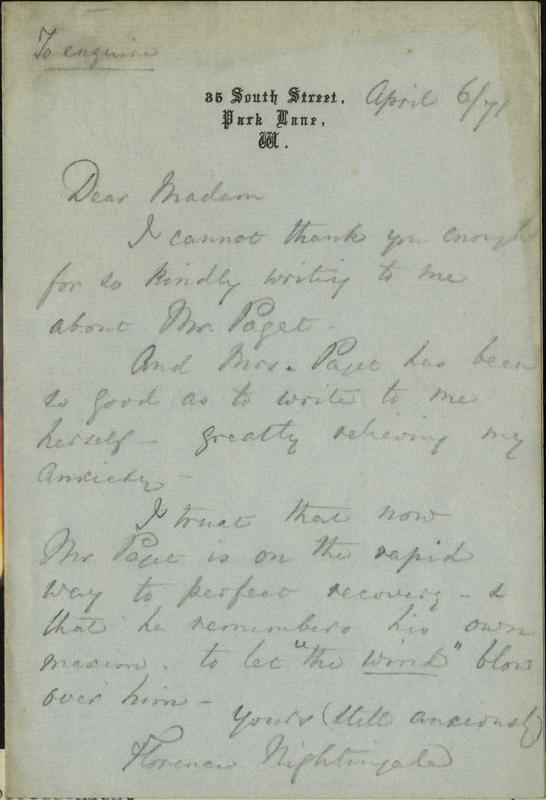 To enquire
35 South Street,
Park Lane,
W.
April 6/71
Dear Madam
I cannot thank you enough
for so kindly writing to me
about Mr. Paget -
And Mrs. Paget has been
so good as to write to me
herself - greatly relieving my
anxiety -
I trust that now
Mr Paget is on the rapid
way to perfect recovery - &
that he remembers his own
maxim. to let "the wind" blow
over him -
yours (still anxiously)
Florence Nightingale